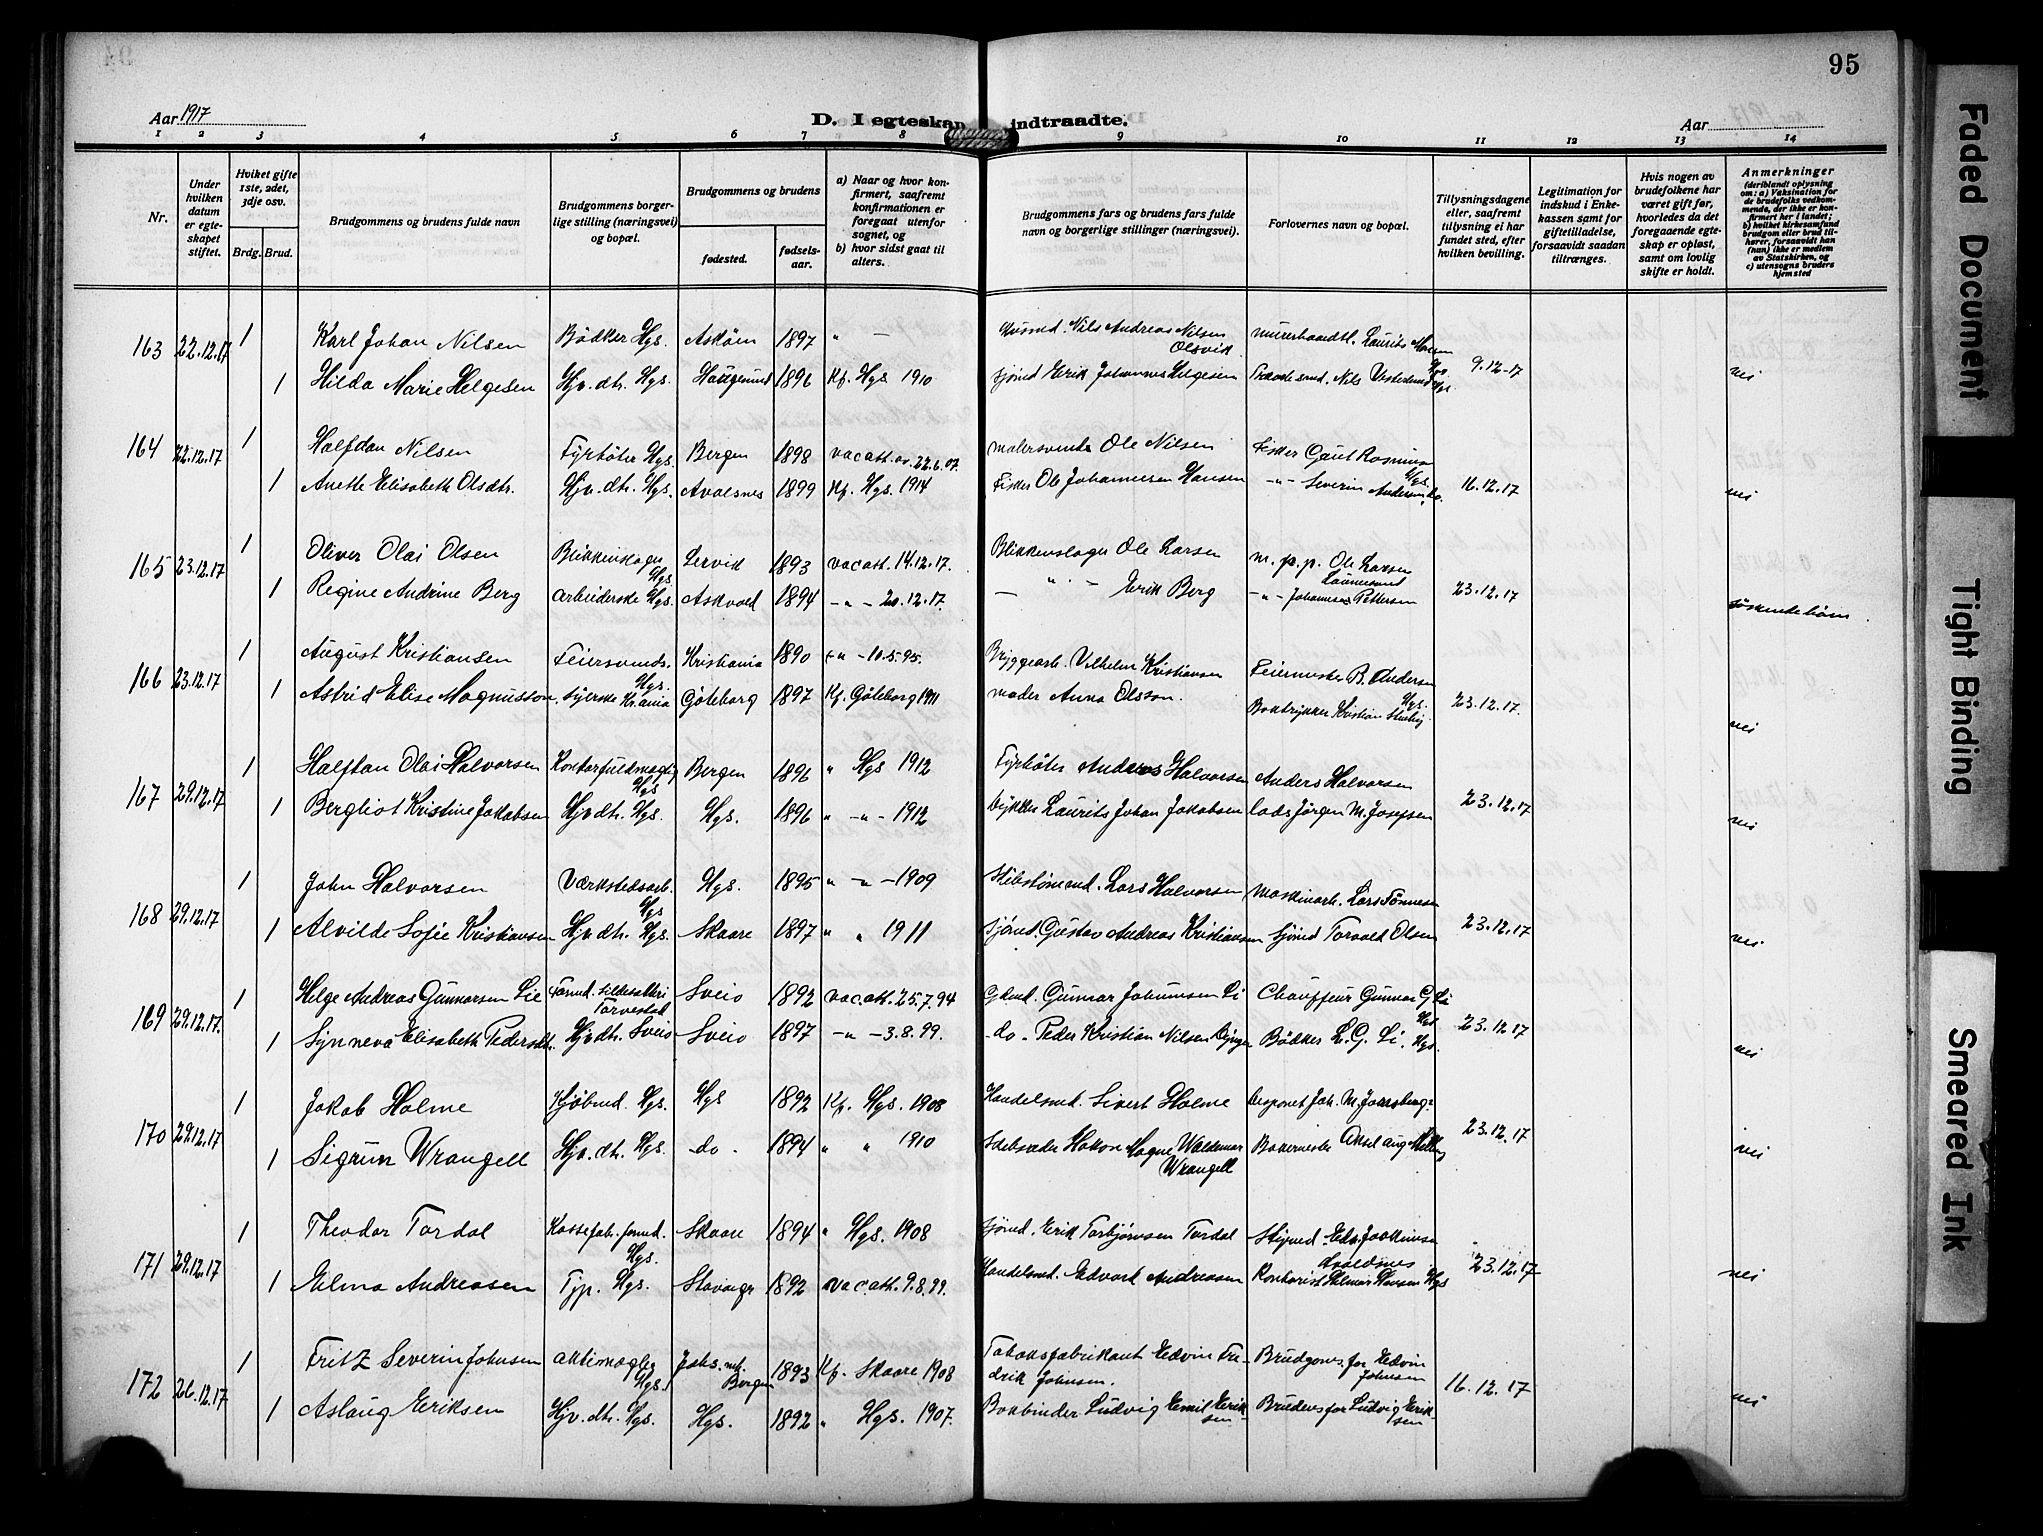 95
Aar 1917
D. Iegteskap indtraadte.
Aar
1 2 3 4 5 6 7 8 9 10 11 12 13 14
Nr.
Under hvilken datum er egteskapet stiftet.
Hviket gifte 1ste, 2det, 3dje osv.
Brdg. Brud.
Brudgommens og brudens fulde navn
Brudgommens borgerlige stilling (næringsvei) og bopæl.
Brudgommens og brudens
fødested.
fødselsaar.
a) Naar og hvor konfirmert, saafremt konfirmationen er foregaat utenfor sognet, og
b) hvor sidst gaat til alters.
Brudgommens fars og brudens fars fulde navn og borgerlige stillinger (næringsvei).
Forlovernes navn og bopæl.
Tillysningsdagene eller, saafremt tillysning ei har fundet sted, efter hvilken bevilling.
Legitimation for indskud i Enkekassen samt for giftetilladelse, forsaavidt saadan tiltrænges.
Hvis nogen av brudefolkene har været gift før, hvorledes da det foregaaende egteskap er opløst, samt om lovlig skifte er holdt.
Anmerkninger
(deriblandt oplysning om: a) Vaksination for de brudefolks vedkommende, der ikke er konfirmert her i landet; b) hvilket kirkesamfund brudgom eller brud tilhører, forsaavidt han (hun) ikke er medlem av Statskirken, og c) utensogns bruders hjemsted
163 22.12.17 1 Karl Johan Nilsen Bödker Hgs. Asköen 1897 " — Husmd. Nils Andreas Nilsen Olsvik
1 Hilda Marie Helgesen Hjv. dtr. Hgs. Haugesund 1896 Kf. Hgs 1910 Sjömd Erik Johannes Helgesen 9.12.17 nei
164 22.12.17 1 Halfdan Nilsen Fyrböter Hgs. Bergen 1898 vac att. av. 22.6.07. malersvend Ole Nilsen Fisker Gaut Rasmusen Hgs.
1 Anethe Elisabeth Olsdtr. Hjv. dtr. Hgs. Avalsnes 1899 Kf. Hgs. 1914 Fisker Ole Johannesen Hansen -"- Severin Andersen do. 16.12.17 nei
165 23.12.17 1 Oliver Olai Olsen Blikkenslager Hgs Lervik 1893 vac att. 14.12.17. Blikkenslager Ole Larsen m. p. p. Ole Larsen
1 Regine Andrine Berg arbeiderske Hgs. Askvold 1894 -"- 20.12.17. -"- Erik Berg -"- Johannes Pettersen 23.12.17 söskendebörn
166 23.12.17 1 August Kristiansen Feiersvend. Hgs. Kristiania 1890 -"- 10.5.95. Bryggearb. Vilhelm Kristiansen Feiermester B. Andersen Hgs.
1 Astrid Elise Magnusson, syerske Kr.ania Göteborg 1897 Kf. Göteborg 1911 moder Anna Olsson. Boktrykker Kristian 23.12.17. nei
167 29.12.17 1 Halfdan Olai Halvorsen Kontorfuldmægtig Hgs Bergen 1896 " Hgs 1912 Fyrböter Anders Halvorsen Anders Halvorsen
1 Bergliot Kristine Jakobsen Hjv dtr. Hgs. Hgs. 1896 " -"- 1912 Laurits Johan Jakobsen Lods Jörgen M. Josefsen 23.12.17 nei
168 29.12.17 1 John Halvorsen Værkstedsarb. Hgs Hgs. 1895 " -"- 1909 Skibstömmd. Lars Halvorsen Maskinarb. Lars Tönnesen
1 Alvilde Sofie Kristiansen Hjv dtr. Hgs. Skaare 1897 " " 1911 Sjömd. Gustav Andreas Kristiansen Sjömd Torvald Olsen 23.12.17 nei
169 29.12.17. 1 Helge Andreas Gunnarsen Lie Formd. sildesalteri Torvestad Sveio 1892 vac. att. 25.7.94 Gdmd. Gunnar Johannsen Li Chauffeur Gunnar G. Li Hgs
1 Synneva Elisabeth Pedersdtr. Hjv dtr. Sveio Sveio 1897 -"- 3.8.99. do- Peder Kristian Nilsen Bödker L. G. Li. Hgs. 23.12.17 nei
170 29.12.17 1 Jakob Holme Kjöbmd. Hgs. Hgs 1892 Kf. Hgs. 1908 Handelsmd. Sivert Holme Disponet Joh. M.
1 Sigrun Wrangell Hjv. dtr. Hgs. do. 1894 " " 1910 Skibsreder Hakon Magne Waldemar Wrangell Bakermester Aksel Aug. 23.12.17 nei
171 29.12.17 1 Theodor Tordal Kassefab. formd. Hgs. Skaare 1894 " Hgs. 1908 Sjömd. Erik Torbjörnsen Tordal Styrmd. Edv. Joakimsen Avaldsnes
1 Elma Andreasen Typ. Hgs. Stavanger 1892 vac. att. 9.8.99. Handelsmd. Edvard Andreasen Kontorist Hjalmar Hansen Hgs 23.12.17 nei
172 26.12.17 1 Fritz Severin Johnsen aktiemægler Hgs. Johs. mh. Bergen 1893 Kf. Skaare 1908 Tobaksfabrikant Edvin Fredrik Johnsen. Brudgoms. far Edvin Johnsen
1 Aslaug Eriksen Hjv. dtr. Hgs. Hgs. 1892 " Hgs. 1907. Bokbinder Ludvig Emil Eriksen Brudens far Ludvig Eriksen 16.12.17 nei
Faded Document
Tight Binding
Smeared Ink